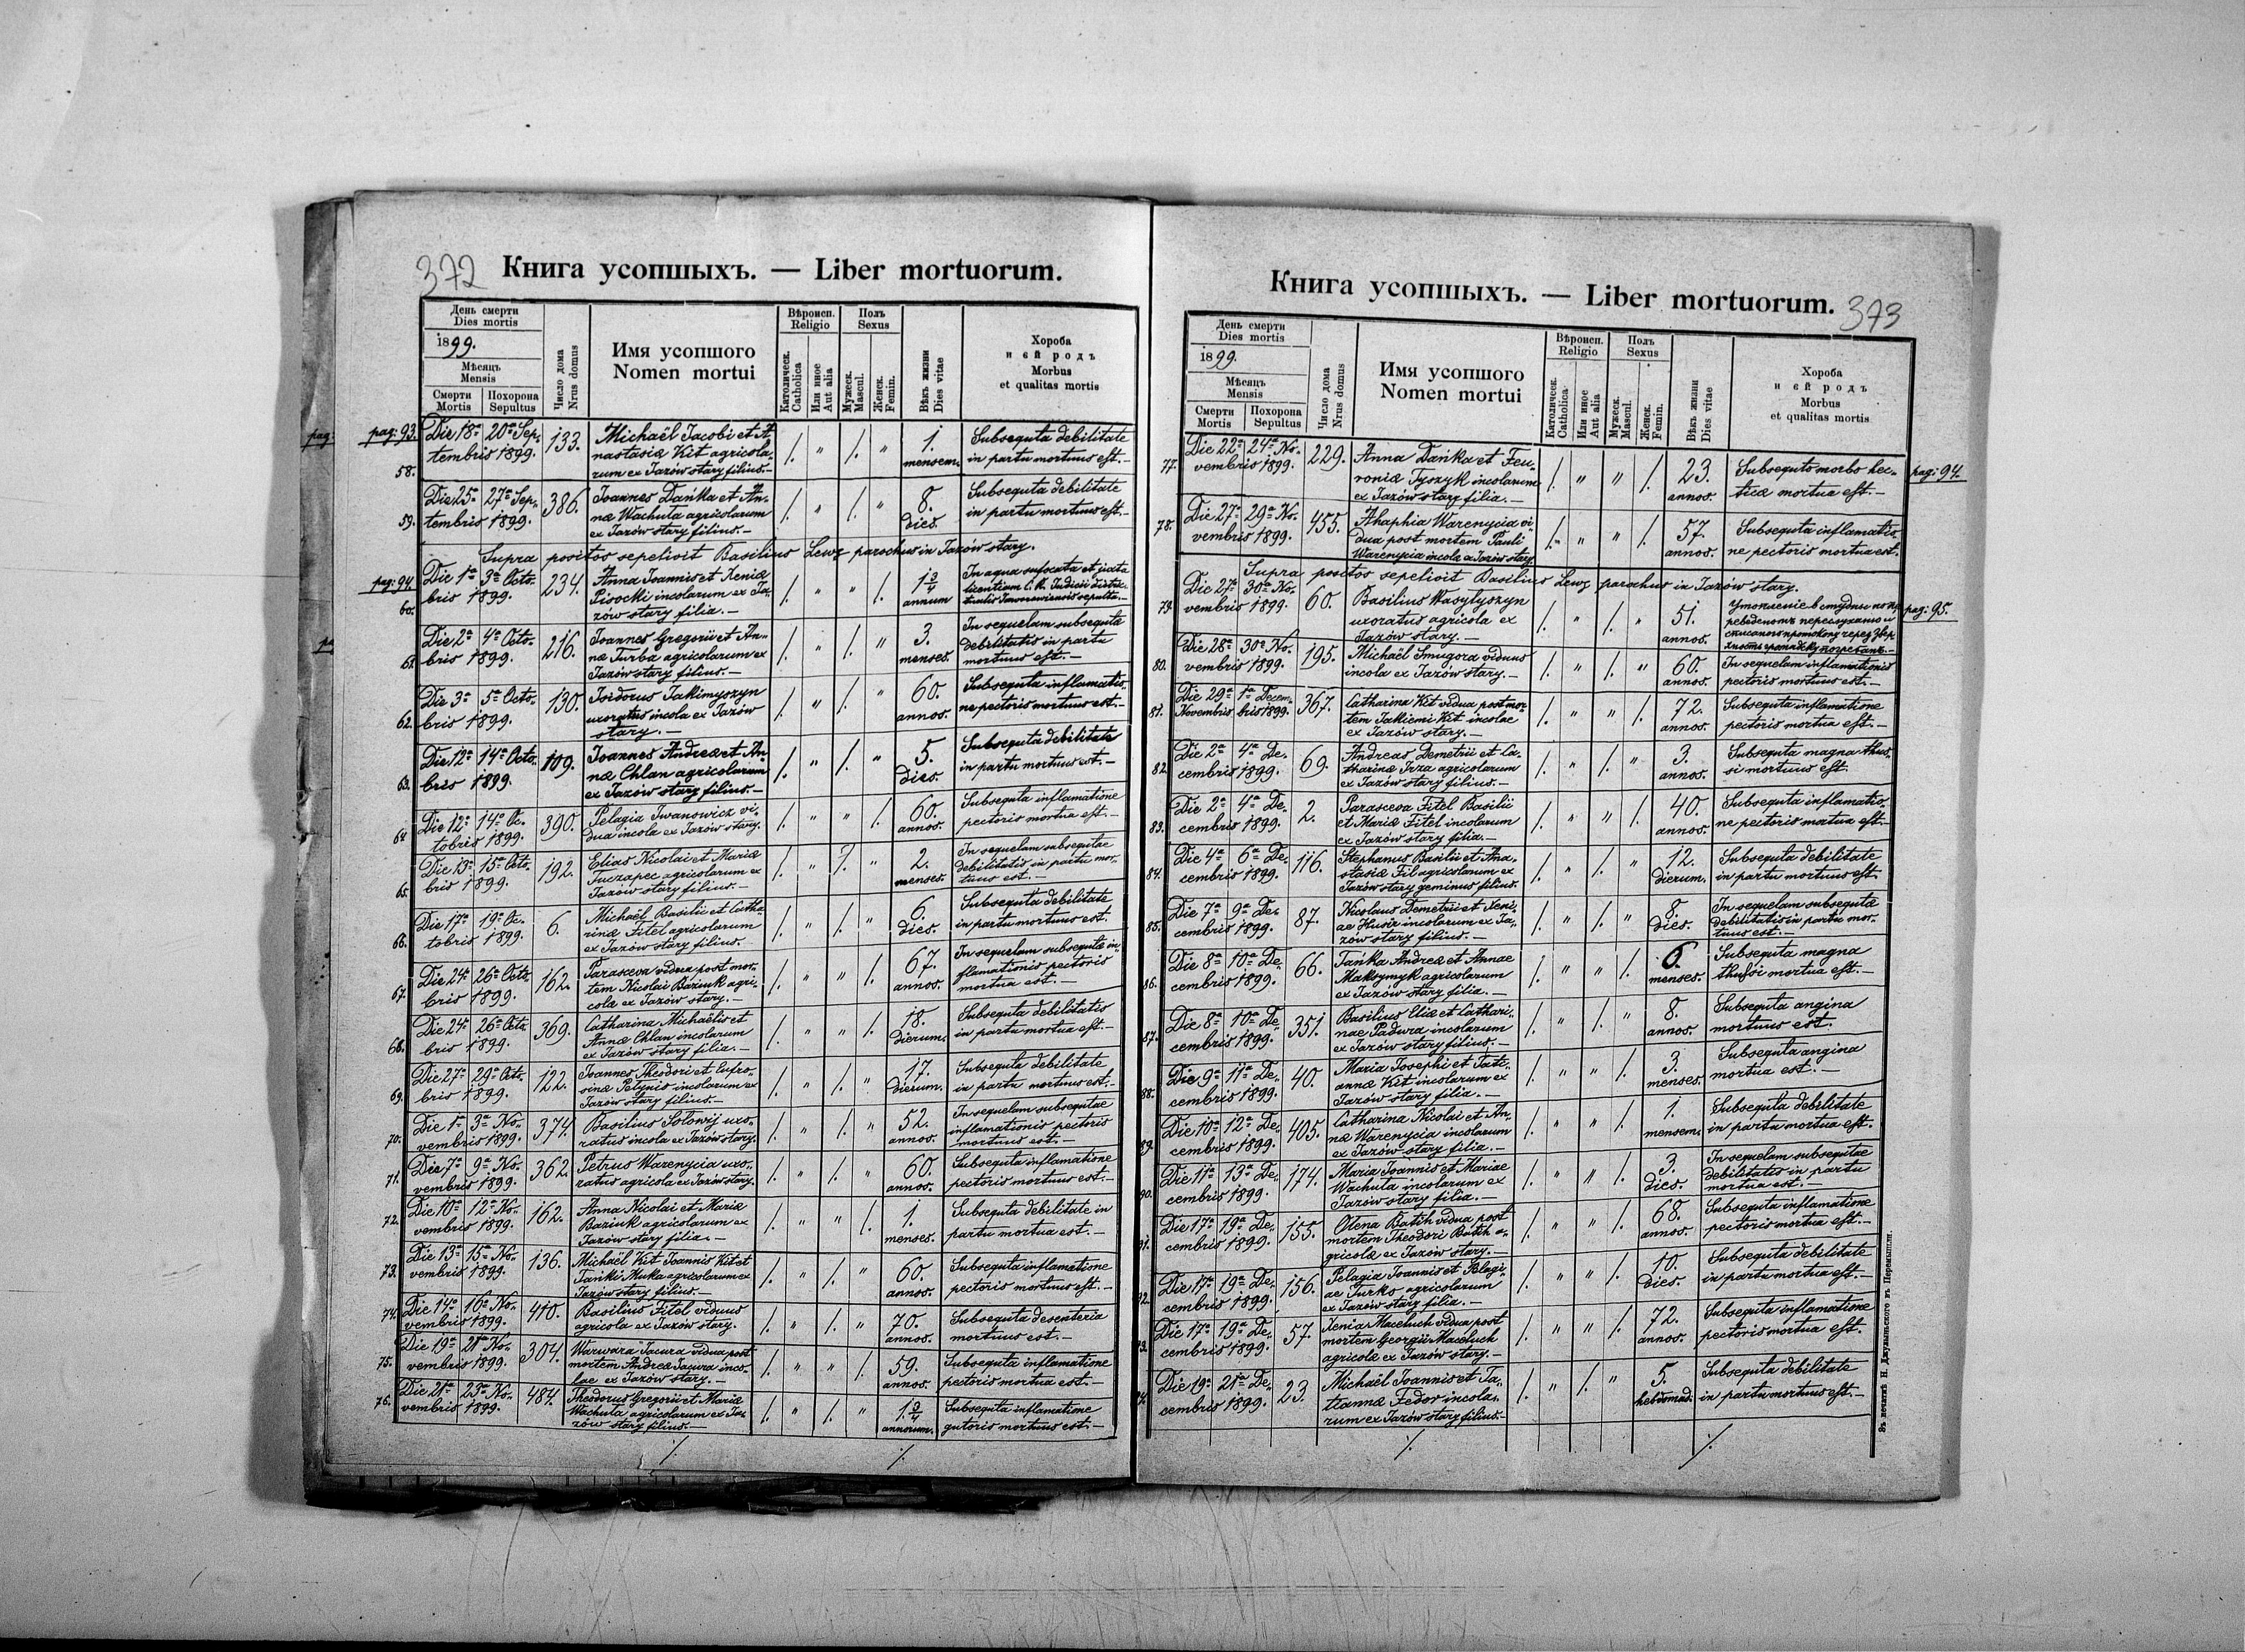 372
Книга усопшыхъ. — Liber mortuorum.
День смерти
Dies mortis
1899.
Мѣсяцъ
Mensis
Смерти
Mortis
Похорона
Sepultus
Число дома
Nrus domus
Имя усопшого
Nomen mortui
Вѣроисп.
Religio
Католическ.
Catholica
Или иное
Aut alia
Полъ
Sexus
Мужеск.
Mascul.
Женск.
Femin.
Вѣкъ жизни
Dies vitae
Хороба
и єѣ родъ
Morbus
et qualitas mortis
pag: 93.
58.
Die 18ª 20ª Sep-
tembris 1899.
133.
Michaël Jacobi et A-
nastasiæ Kit agricola-
rum ex Jazów stary filius.—
/. " /. "
1.
mensem.
Subsequta debilitate
in partu mortuus est.—
59.
Die 25ª 27ª Sep-
tembris 1899.
386.
Joannes Dańka et An-
næ Wachuta agricolarum
ex Jazów stary filius.—
/. " /. "
8.
dies.
Subsequta debilitate
in partu mortuus est.—
Supra positos sepelivit Basilius Lewz parochus in Jazów stary.
pag: 94
60.
Die 1ª 3ª Octo-
bris 1899.
234.
Anna Joannis et Xeniæ
Pisocki incolarum ex Ja-
zów stary filia.—
/. " " /.
1 3/4
annum
In aqua sufocata et juxta
licentiam C. R. Judicii distric-
tualis Javoroviensis sepulta.—
61.
Die 2ª 4ª Octo-
bris 1899.
216.
Joannes Gregorii et An-
næ Turba agricolarum ex
Jazów stary filius.—
/. " /. "
3.
menses.
In sequelam subsequtæ
debilitatis in partu
mortuus est.—
62.
Die 3ª 5ª Octo-
bris 1899.
130.
Isidorus Jakimyszyn
uxoratus incola ex Jazów
stary.—
/. " /. "
60.
annos.
Subsequta inflamatio-
ne pectoris mortuus est.—
63.
Die 12ª 14ª Octo-
bris 1899.
109.
Joannes Andreæ et An-
næ Chlan agricolarum
ex Jazów stary filius.—
/. " /. "
5.
dies.
Subsequta debilitate
in partu mortuus est.—
64
Die 12ª 14ª Oc-
tobris 1899.
390.
Pelagia Iwanowicz vi-
dua incola ex Jazów stary.
/. " " /.
60.
annos.
Subsequta inflamatione
pectoris mortua est.—
65.
Die 13ª 15ª Octo-
bris 1899.
192.
Elias Nicolai et Mariæ
Tuczapec agricolarum ex
Jazów stary filius.—
/. " /. "
2.
menses.
In sequelam subsequtae
debilitatis in partu mor-
tuus est.—
66.
Die 17ª 19ª Oc-
tobris 1899.
6.
Michaël Basilii et Catha-
rinæ Fitel agricolarum
ex Jazów stary filius.
/. " /. "
6.
dies.
Subsequta debilitate
in partu mortuus est.
67.
Die 24ª 26ª Octo-
bris 1899.
162.
Parasceva vidua post mor-
tem Nicolai Baziuk agri-
colæ ex Jazów stary.—
/. " " /.
67.
annos.
In sequelam subsequtæ in-
flamationis pectoris
mortua est.—
68.
Die 24ª 26ª Octo-
bris 1899.
369.
Catharina Michaëlis et
Annæ Chlan incolarum
ex Jazów stary filia.—
/. " " /.
18.
dierum.
Subsequta debilitatis
in partu mortua est.—
69.
Die 27ª 29ª Octo-
bris 1899.
122.
Joannes Theodori et Eufro-
sinæ Petynis incolarum ex
Jazów stary filius.—
/. " /. "
17.
dierum.
Subsequta debilitate
in partu mortuus est.—
70.
Die 1ª 3ª No-
vembris 1899.
374.
Basilius Solowij uxo-
ratus incola ex Jazów stary.
/. " /. "
52.
annos.
In sequelam subsequtae
inflamationis pectoris
mortuus est.—
71.
Die 7ª 9ª No-
vembris 1899.
362.
Petrus Warenycia uxo-
ratus agricola ex Jazów stary.
/. " /. "
60.
annos.
Subsequta inflamatione
pectoris mortuus est.—
72.
Die 10ª 12ª No-
vembris 1899.
162.
Anna Nicolai et Mariæ
Baziuk agricolarum ex
Jazów stary filia.—
/. " " /.
1.
menses.
Subsequta debilitate in
partu mortua est.—
73.
Die 13ª 15ª No-
vembris 1899.
136.
Michaël Kit Joannis Kit et
Tańki Muka agricolarum ex
Jazów stary filius.—
/. " /. "
60.
annos.
Subsequta inflamatione
pectoris mortuus est.—
74.
Die 14ª 16ª No-
vembris 1899.
410.
Basilius Fitel viduus
agricola ex Jazów stary.
/. " /. "
70.
annos.
Subsequta desenteria
mortuus est.—
75.
Die 19ª 21ª No-
vembris 1899.
304.
Warwara Jacura vidua post
mortem Andreæ Jacura inco-
lae ex Jazów stary.—
/. " " /.
59.
annos.
Subsequta inflamatione
pectoris mortua est.—
76.
Die 21ª 23ª No-
vembris 1899.
484.
Theodorus Gregorii et Mariæ
Wachuta agricolarum ex Ja-
zów stary filius.—
/. " /. "
1 3/4
annorum.
Subsequta inflamatione
gutoris mortuus est.—
Книга усопшыхъ. — Liber mortuorum.
373
День смерти
Dies mortis
1899.
Мѣсяцъ
Mensis
Смерти
Mortis
Похорона
Sepultus
Число дома
Nrus domus
Имя усопшого
Nomen mortui
Вѣроисп.
Religio
Католическ.
Catholica
Или иное
Aut alia
Полъ
Sexus
Мужеск.
Mascul.
Женск.
Femin.
Вѣкъ жизни
Dies vitae
Хороба
и єѣ родъ
Morbus
et qualitas mortis
77.
Die 22ª 24ª No-
vembris 1899.
229.
Anna Dańka et Feu-
roniæ Tyszyk incolarum
ex Jazów stary filia.—
/. " " /.
23.
annos.
Subsequto morbo hec-
ticæ mortua est.—
pag: 94.
78.
Die 27ª 29ª No-
vembris 1899.
455.
Ahaphia Warenycia vi-
dua post mortem Pauli
Warenycia incola ex Jazów stary
/. " " /.
57.
annos.
Subsequta inflamatio-
ne pectoris mortua est.
Supra positos sepelivit Basilius Lewz parochus in Jazów stary.
79.
Die 27ª 30ª No-
vembris 1899.
60.
Basilius Wasylyszyn
uxoratus agricola ex
Jazów stary.—
/. " /. "
51.
annos.
pag: 95.
80.
Die 28ª 30ª No-
vembris 1899.
195.
Michaël Smugora viduus
incola ex Jazów stary.—
/. " /. "
60.
annos.
In sequelam inflamationis
pectoris mortuus est.—
81.
Die 29ª 1ª Decem-
Novembris bris 1899.
367.
Catharina Kit vidua post mor-
tem Jakiemi Kit incolae
ex Jazów stary.—
/. " " /.
72.
annos.
Subsequta inflamatione
pectoris mortua est.—
82.
Die 2ª 4ª De-
cembris 1899.
69.
Andreas Demetrii et Ca-
tharinæ Irza agricolarum
ex Jazów stary filius.—
/. " /. "
3.
annos.
Subsequta magna thus-
si mortuus est.
83.
Die 2ª 4ª De-
cembris 1899.
2.
Parasceva Fitel Basilii
et Mariæ Fitel incolarum
ex Jazów stary filia.—
/. " " /.
40.
annos.
Subsequta inflamatio-
ne pectoris mortua est.—
84.
Die 4ª 6ª De-
cembris 1899.
116.
Stephanus Basilii et Ana-
stasiæ Fil agricolarum ex
Jazów stary geminus filius.
/. " /. "
12.
dierum.
Subsequta debilitate
in partu mortuus est.
85.
Die 7ª 9ª De-
cembris 1899.
87.
Nicolaus Demetrii et Xeni-
ae Husir incolarum ex Ja-
zów stary filius.—
/. " /. "
8.
dies.
In sequelam subsequtæ
debilitatis in partu mor-
tuus est.—
86.
Die 8ª 10ª De-
cembris 1899.
66.
Tańka Andreæ et Annae
Maksymyk agricolarum
ex Jazów stary filia.—
/. " " /.
6.
menses.
Subsequta magna
thussi mortua est.—
87.
Die 8ª 10ª De-
cembris 1899.
351.
Basilius Eliæ et Cathari-
nae Padura incolarum
ex Jazów stary filius.—
/. " /. "
8.
annos.
Subsequta angina
mortuus est.
88.
Die 9ª 11ª De-
cembris 1899.
40.
Maria Josephi et Tati-
annæ Kit incolarum ex
Jazów stary filia.—
/. " " /.
3.
menses.
Subsequta angina
mortua est.—
89.
Die 10ª 12ª De-
cembris 1899.
405.
Catharina Nicolai et An-
næ Warenycia incolarum
ex Jazów stary filia.—
/. " " /.
1.
mensem.
Subsequta debilitate
in partu mortua est.
90.
Die 11ª 13ª De-
cembris 1899.
174.
Maria Joannis et Mariae
Wachuta incolarum ex
Jazów stary filia.—
/. " " /.
3.
dies.
In sequelam subsequtae
debilitatis in partu
mortua est.—
91.
Die 17ª 19ª De-
cembris 1899.
155.
Olena Batih vidua post
mortem Theodori Batih a-
gricolæ ex Jazów stary.—
/. " " /.
68.
annos.
Subsequta inflamatione
pectoris mortua est.—
92.
Die 17ª 19ª De-
cembris 1899.
156.
Pelagia Joannis et Pelagi-
ae Turko agricolarum
ex Jazów stary filia.—
/. " " /.
10.
dies.
Subsequta debilitate
in partu mortua est.—
93.
Die 17ª 19ª De-
cembris 1899.
57.
Xenia Maceluch vidua post
mortem Georgii Maceluch
agricolæ ex Jazów stary.—
/. " " /.
72.
annos.
Subsequta inflamatione
pectoris mortua est.
94.
Die 19ª 21ª De-
cembris 1899.
23.
Michaël Joannis et Ta-
tiannæ Fedor incola-
rum ex Jazów stary filius.—
/. " /. "
5.
hebdomad.
Subsequta debilitate
in partu mortuus est.—
Въ печатнѣ Н. Джулынського въ Перемышли.